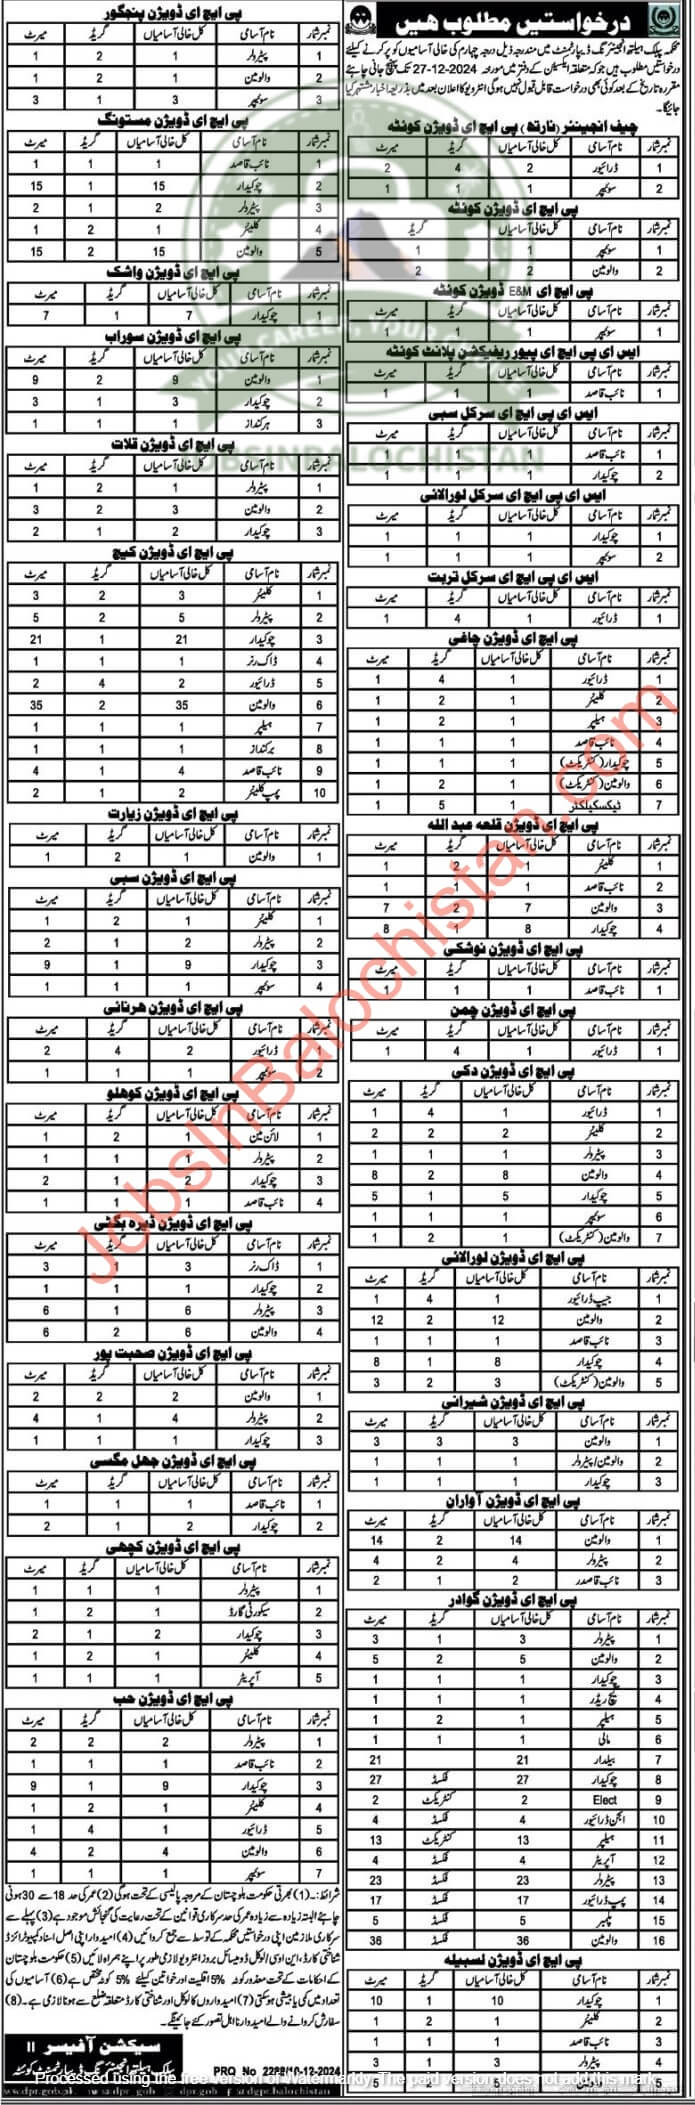 درخواستیں مطلوب ہیں
محکمہ پبلک ہیلتھ انجینئرنگ ڈیپارٹمنٹ میں مندرجہ ذیل درجہ چہارم کی خالی آسامیوں کو پر کرنے کیلئے
درخواستیں مطلوب ہیں جو کہ متعلقہ ایکسین کے دفتر میں مورخہ 27-12-2024 تک پہنچ جانی چاہئے
مقررہ تاریخ کے بعد کوئی بھی درخواست قابل قبول نہیں ہوگی انٹرویو کا اعلان بعد میں بذریعہ اخبار مشتہر کیا
جائیگا۔
چیف انجینئر (نارتھ) پی ایچ ای ڈویژن کوئٹہ
نمبر شمار نام آسامی کل خالی آسامیاں گریڈ میرٹ
1 ڈرائیور 2 4 2
2 سوئیپر 1 1 1
پی ایچ ای ڈویژن کوئٹہ
نمبر شمار نام آسامی کل خالی آسامیاں گریڈ میرٹ
1 سوئیپر 1 1 1
2 والومین 2 2 2
پی ایچ ای E&M ڈویژن کوئٹہ
نمبر شمار نام آسامی کل خالی آسامیاں گریڈ میرٹ
1 سوئیپر 1 1 1
ایس ای پی ایچ ای پیور ریفیکشن پلانٹ کوئٹہ
نمبر شمار نام آسامی کل خالی آسامیاں گریڈ میرٹ
1 نائب قاصد 1 1 1
ایس ای پی ایچ ای سرکل سبی
نمبر شمار نام آسامی کل خالی آسامیاں گریڈ میرٹ
1 نائب قاصد 1 1 1
2 چوکیدار 1 1 1
ایس ای پی ایچ ای سرکل لورالائی
نمبر شمار نام آسامی کل خالی آسامیاں گریڈ میرٹ
1 چوکیدار 1 1 1
2 سوئیپر 1 1 1
ایس ای پی ایچ ای سرکل تربت
نمبر شمار نام آسامی کل خالی آسامیاں گریڈ میرٹ
1 ڈرائیور 1 4 1
پی ایچ ای ڈویژن چاغی
نمبر شمار نام آسامی کل خالی آسامیاں گریڈ میرٹ
1 ڈرائیور 1 4 1
2 کلینر 1 2 1
3 ہیلپر 1 2 1
4 نائب قاصد 1 1 1
5 چوکیدار (کنٹریکٹ) 1 1 1
6 والومین (کنٹریکٹ) 1 2 1
7 ٹیکسکیلکٹر 1 5 1
پی ایچ ای ڈویژن قلعہ عبد اللہ
نمبر شمار نام آسامی کل خالی آسامیاں گریڈ میرٹ
1 کلینر 1 2 1
2 نائب قاصد 1 1 1
3 والومین 7 2 7
4 چوکیدار 8 1 8
پی ایچ ای ڈویژن نوشکی
نمبر شمار نام آسامی کل خالی آسامیاں گریڈ میرٹ
1 نائب قاصد 1 1 1
پی ایچ ای ڈویژن چمن
نمبر شمار نام آسامی کل خالی آسامیاں گریڈ میرٹ
1 ڈرائیور 1 4 1
پی ایچ ای ڈویژن دکی
نمبر شمار نام آسامی کل خالی آسامیاں گریڈ میرٹ
1 ڈرائیور 1 4 1
2 کلینر 2 2 2
3 پیٹرولر 1 1 1
4 والومین 8 2 8
5 چوکیدار 5 1 5
6 سوئیپر 1 1 1
7 والومین (کنٹریکٹ) 1 2 1
پی ایچ ای ڈویژن لورالائی
نمبر شمار نام آسامی کل خالی آسامیاں گریڈ میرٹ
1 جیپ ڈرائیور 1 4 1
2 والومین 12 2 12
3 نائب قاصد 1 1 1
4 چوکیدار 8 1 8
5 والومین (کنٹریکٹ) 3 2 3
پی ایچ ای ڈویژن شیرانی
نمبر شمار نام آسامی کل خالی آسامیاں گریڈ میرٹ
1 والومین 3 3 3
2 والومین/پیٹرولر 1 1 1
3 چوکیدار 1 1 1
پی ایچ ای ڈویژن آواران
نمبر شمار نام آسامی کل خالی آسامیاں گریڈ میرٹ
1 والومین 14 2 14
2 پیٹرولر 4 2 4
3 نائب قاصدر 2 1 2
پی ایچ ای ڈویژن گوادر
نمبر شمار نام آسامی کل خالی آسامیاں گریڈ میرٹ
1 پیٹرولر 3 1 3
2 والومین 5 2 5
3 چوکیدار 1 1 1
4 میچ ریڈر 1 1 1
5 ہیلپر 1 2 1
6 مالی 1 1 1
7 بیلدار 21 21
8 چوکیدار 27 فکسڈ 27
9 Elect 2 کنٹریکٹ 2
10 انجن ڈرائیور 4 فکسڈ 4
11 ہیلپر 13 کنٹریکٹ 13
12 آپریٹر 4 فکسڈ 4
13 پیٹرولر 23 فکسڈ 23
14 پمپ ڈرائیور 17 فکسڈ 17
15 پلمبر 5 فکسڈ 5
16 والومین 36 فکسڈ 36
پی ایچ ای ڈویژن لسبیلہ
نمبر شمار نام آسامی کل خالی آسامیاں گریڈ میرٹ
1 چوکیدار 10 1 10
2 کلینر 1 2 1
3 نائب قاصد 1 1 1
4 پیٹرولر 3 1 3
5 والومین 5 2 5
پی ایچ ای ڈویژن پنجگور
نمبر شمار نام آسامی کل خالی آسامیاں گریڈ میرٹ
1 پیٹرولر 1 2 1
2 والومین 1 2 1
3 سوئیپر 3 1 3
پی ایچ ای ڈویژن مستونگ
نمبر شمار نام آسامی کل خالی آسامیاں گریڈ میرٹ
1 نائب قاصد 1 1 1
2 چوکیدار 15 1 15
3 پیٹرولر 2 1 2
4 کلینر 1 2 1
5 والومین 15 2 15
پی ایچ ای ڈویژن واشک
نمبر شمار نام آسامی کل خالی آسامیاں گریڈ میرٹ
1 چوکیدار 7 1 7
پی ایچ ای ڈویژن سوراب
نمبر شمار نام آسامی کل خالی آسامیاں گریڈ میرٹ
1 والومین 9 2 9
2 چوکیدار 3 1 3
3 برکنداز 1 1 1
پی ایچ ای ڈویژن قلات
نمبر شمار نام آسامی کل خالی آسامیاں گریڈ میرٹ
1 پیٹرولر 1 2 1
2 والومین 3 2 3
3 چوکیدار 2 1 2
پی ایچ ای ڈویژن کیچ
نمبر شمار نام آسامی کل خالی آسامیاں گریڈ میرٹ
1 کلینر 3 2 3
2 پیٹرولر 5 2 5
3 چوکیدار 21 1 21
4 ڈاک رنر 1 1 1
5 ڈرائیور 2 4 2
6 والومین 35 2 35
7 ہیلپر 1 1 1
8 برکنداز 1 1 1
9 نائب قاصد 4 1 4
10 پمپ کلینر 2 1 2
پی ایچ ای ڈویژن زیارت
نمبر شمار نام آسامی کل خالی آسامیاں گریڈ میرٹ
1 والومین 1 2 1
پی ایچ ای ڈویژن سبی
نمبر شمار نام آسامی کل خالی آسامیاں گریڈ میرٹ
1 کلینر 1 2 1
2 پیٹرولر 2 1 2
3 چوکیدار 9 1 9
4 سوئیپر 1 1 1
پی ایچ ای ڈویژن ہرنائی
نمبر شمار نام آسامی کل خالی آسامیاں گریڈ میرٹ
1 ڈرائیور 2 4 2
2 سوئیپر 1 1 1
پی ایچ ای ڈویژن کوہلو
نمبر شمار نام آسامی کل خالی آسامیاں گریڈ میرٹ
1 لائن مین 1 2 1
2 پیٹرولر 1 1 1
3 چوکیدار 2 1 2
4 نائب قاصد 1 1 1
پی ایچ ای ڈویژن ڈیرہ بگٹی
نمبر شمار نام آسامی کل خالی آسامیاں گریڈ میرٹ
1 ڈاک رنر 3 1 3
2 چوکیدار 1 1 1
3 پیٹرولر 6 1 6
4 والومین 6 2 6
پی ایچ ای ڈویژن صحبت پور
نمبر شمار نام آسامی کل خالی آسامیاں گریڈ میرٹ
1 والومین 2 2 2
2 پیٹرولر 4 1 4
3 چوکیدار 1 1 1
پی ایچ ای ڈویژن جھل مگسی
نمبر شمار نام آسامی کل خالی آسامیاں گریڈ میرٹ
1 نائب قاصد 1 1 1
2 چوکیدار 2 1 2
پی ایچ ای ڈویژن کچھی
نمبر شمار نام آسامی کل خالی آسامیاں گریڈ میرٹ
1 پیٹرولر 1 1 1
2 سیکورٹی گارڈ 1 2 1
3 چوکیدار 2 1 2
4 کلینر 1 2 1
5 آپریٹر 1 1 1
پی ایچ ای ڈویژن حب
نمبر شمار نام آسامی کل خالی آسامیاں گریڈ میرٹ
1 پیٹرولر 2 2 2
2 نائب قاصد 1 1 1
3 چوکیدار 9 1 9
4 کلینر 1 2 1
5 ڈرائیور 1 4 1
6 والومین 4 2 4
7 سوئیپر 1 1 1
شرائط:۔ (1) بھرتی حکومت بلوچستان کے مروجہ پالیسی کے تحت ہوگی (2) عمر کی حد 18 سے 30 ہونی
چاہئے البتہ زیادہ سے زیادہ عمر کی حد سرکاری قوانین کے تحت رعایت کی گنجائش موجود ہے (3) پہلے سے
سرکاری ملازمین اپنی درخواستیں محکمہ کے توسط سے جمع کروائیں (4) امیدوار اپنی اصل اسناد کمپیوٹرائزڈ
شناختی کارڈ، این او سی، لوکل ڈومیسائل بروز انٹرویو لازمی طور پر اپنے ہمراہ لائیں (5) حکومت بلوچستان
کے احکامات کے تحت معذور کوٹہ 5% اقلیت اور خواتین کیلئے 5% کوٹہ مختص ہے (6) آسامیوں کی
تعداد میں کمی یا بیشی ہوسکتی (7) امیدواروں کا لوکل اور شناختی کارڈ متعلقہ ضلع سے ہونا لازمی ہے۔ (8)
سفارش کروانے والے امیدوار نا اہل تصور کئے جائینگے۔
سیکشن آفیسر II
پبلک ہیلتھ انجینئرنگ ڈیپارٹمنٹ کوئٹہ
PRQ No 2288/10-12-2024
www.dpr.gob.pk dpr.gob @dgpr.balochistan
YOUR CAREER, YOUR
JOBSINBALOCHISTAN
JobsInBalochistan.com
Processed using the free version of Watermarkly. The paid version does not add this mark.